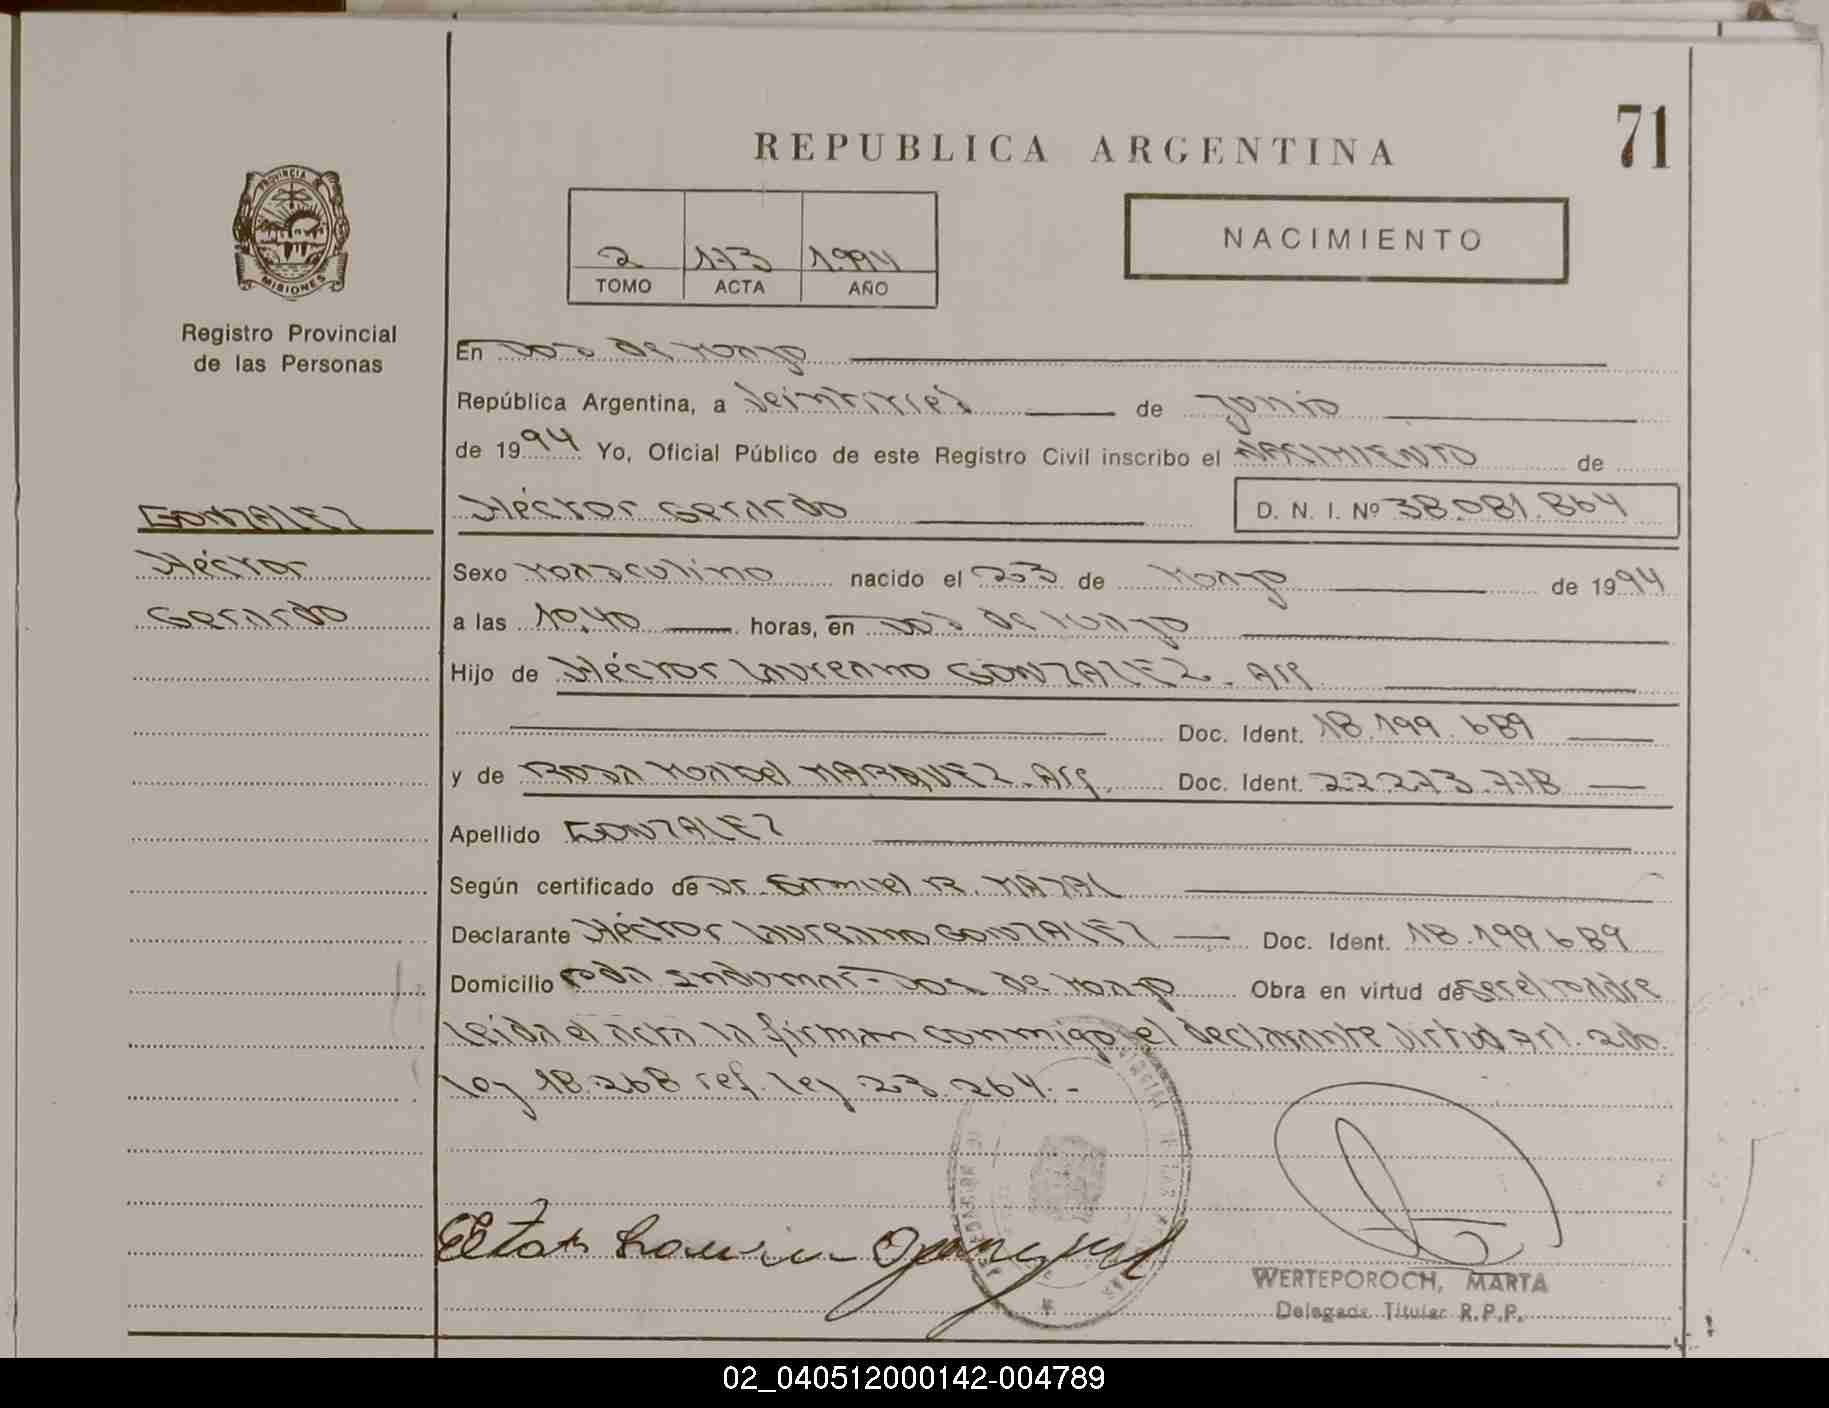 71
REPUBLICA ARGENTINA
PROVINCIA
MISIONES
Registro Provincial
de las Personas
2 173 1.994
TOMO ACTA AÑO
NACIMIENTO
En Dos de Mayo
República Argentina, a Veintitres de Junio
de 1994 Yo, Oficial Público de este Registro Civil inscribo el NACIMIENTO de
GONZALEZ
Héctor
Gerardo
Héctor Gerardo D. N. I. Nº 38.081.864
Sexo Masculino nacido el 23 de Mayo de 1994
a las 10,40 horas, en Dos de Mayo
Hijo de Héctor Laureano GONZALEZ - Arg.
Doc. Ident. 18.199.689
y de Rosa Mabel MARQUEZ - Arg. Doc. Ident. 22.273.718
Apellido GONZALEZ
Según certificado de Dr. R.
Declarante Héctor Laureano GONZALEZ Doc. Ident. 18.199.689
Domicilio - Dos de Mayo Obra en virtud de ser el Padre
Leida el acta la firman conmigo el declarante Virtud art.
Ley 18.268 ref. Ley 23.264.-
WERTEPOROCH, MARTA
Delegada Titular R.P.P.
02_040512000142-004789